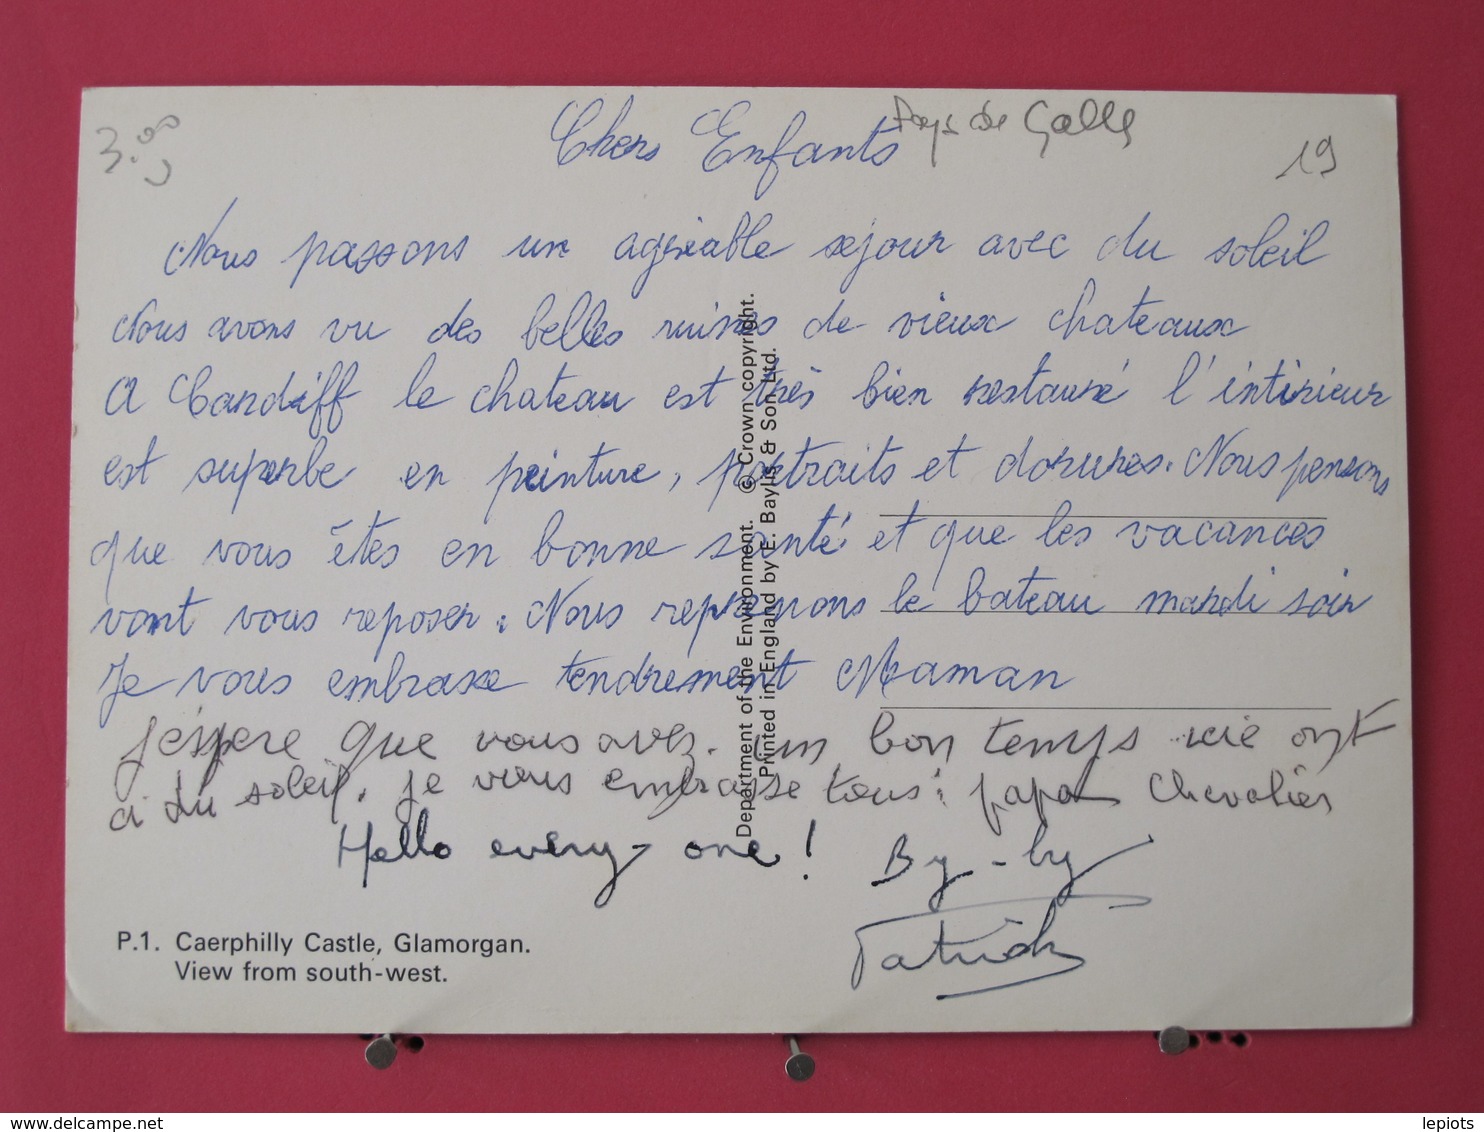 3.00
Pays de Galle
19
Chers Enfants
Nous passons un agréable séjour avec du soleil
Nous avons vu des belles ruines de vieux chateaux
A Cardiff le chateau est très bien restauré l'intérieur
est superbe en peinture, portraits et dorures. Nous pensons
que vous êtes en bonne santé et que les vacances
vont vous reposer. Nous reprenons le bateau mardi soir
Je vous embrasse tendrement Maman
J'espere que vous avez un bon temps ont
a du soleil. je vous embrasse tous: papa Chevalier
Hello every-one! By-by
Patrick
Department of the Environment. © Crown copyright.
Printed in England by E. Baylis & Son Ltd.
P.1. Caerphilly Castle, Glamorgan.
View from south-west.
www.delcampe.net
lepiots